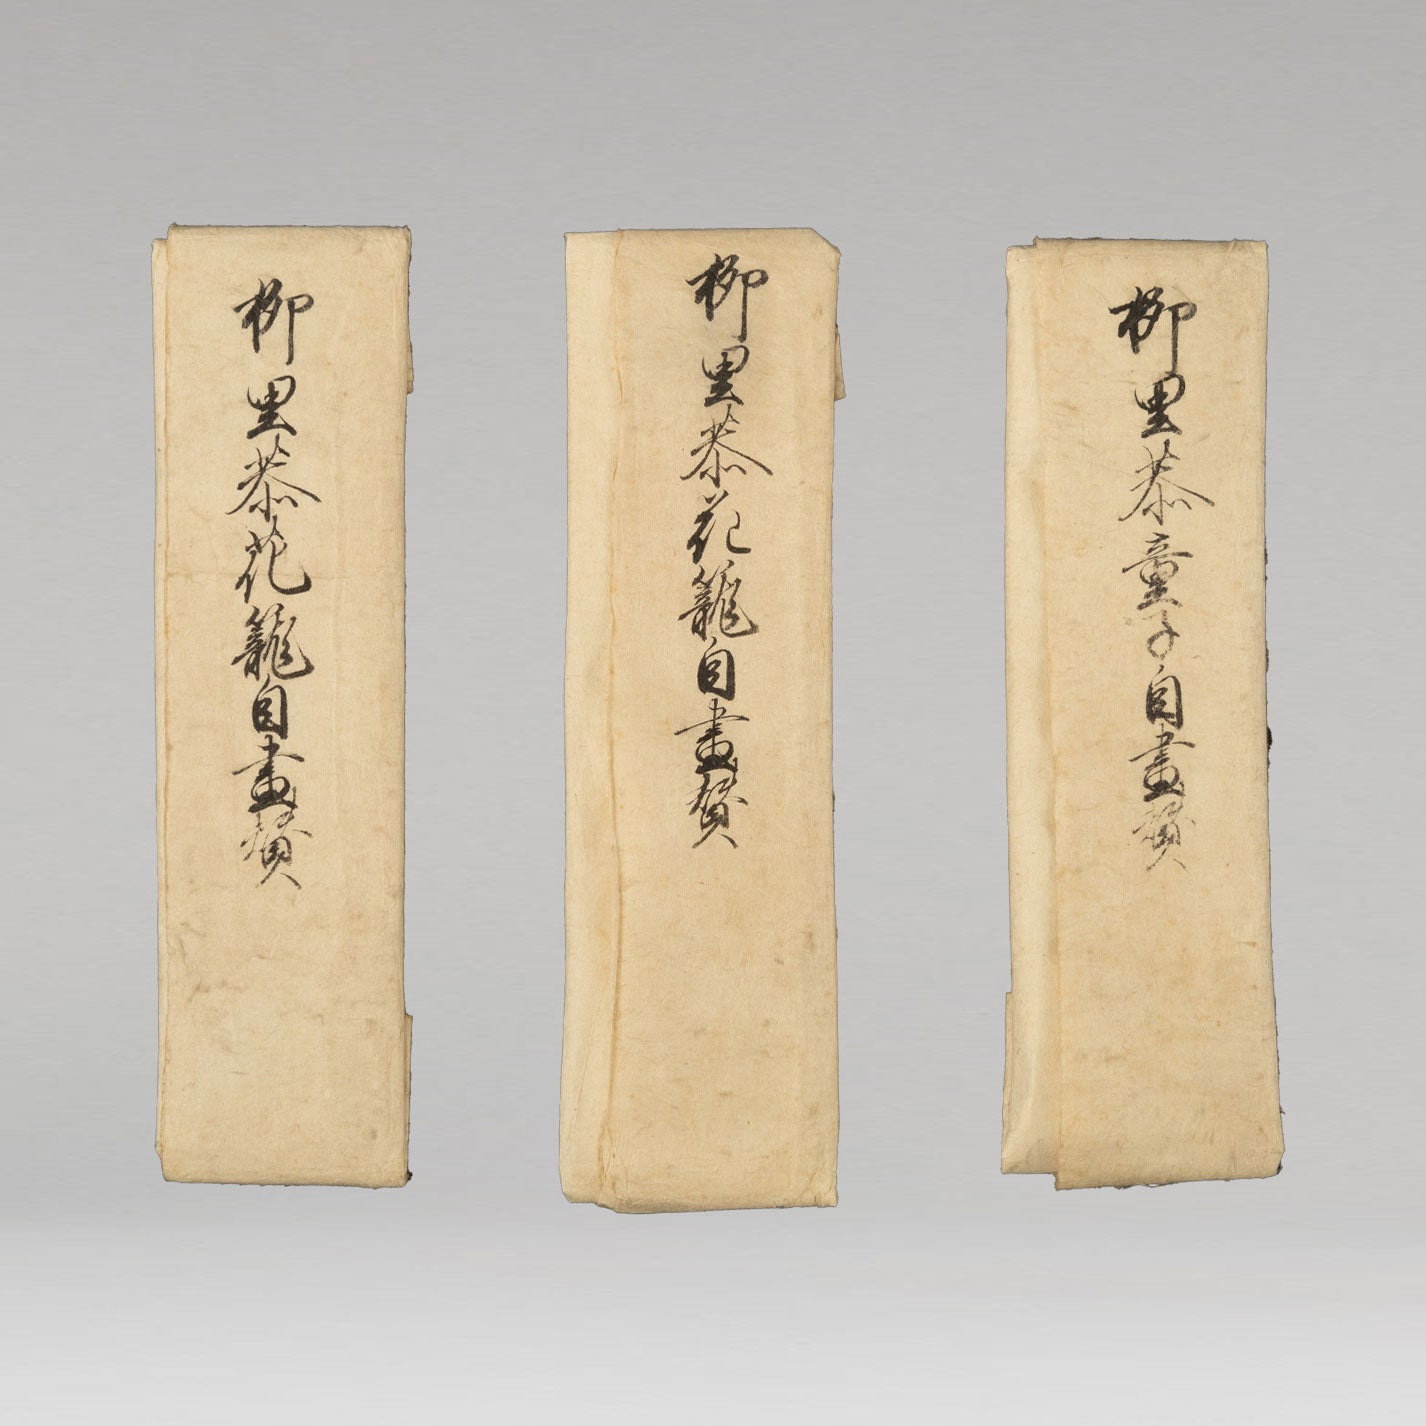 柳里恭花籠自畫賛
柳里恭花籠自畫賛
柳里恭童子自畫賛